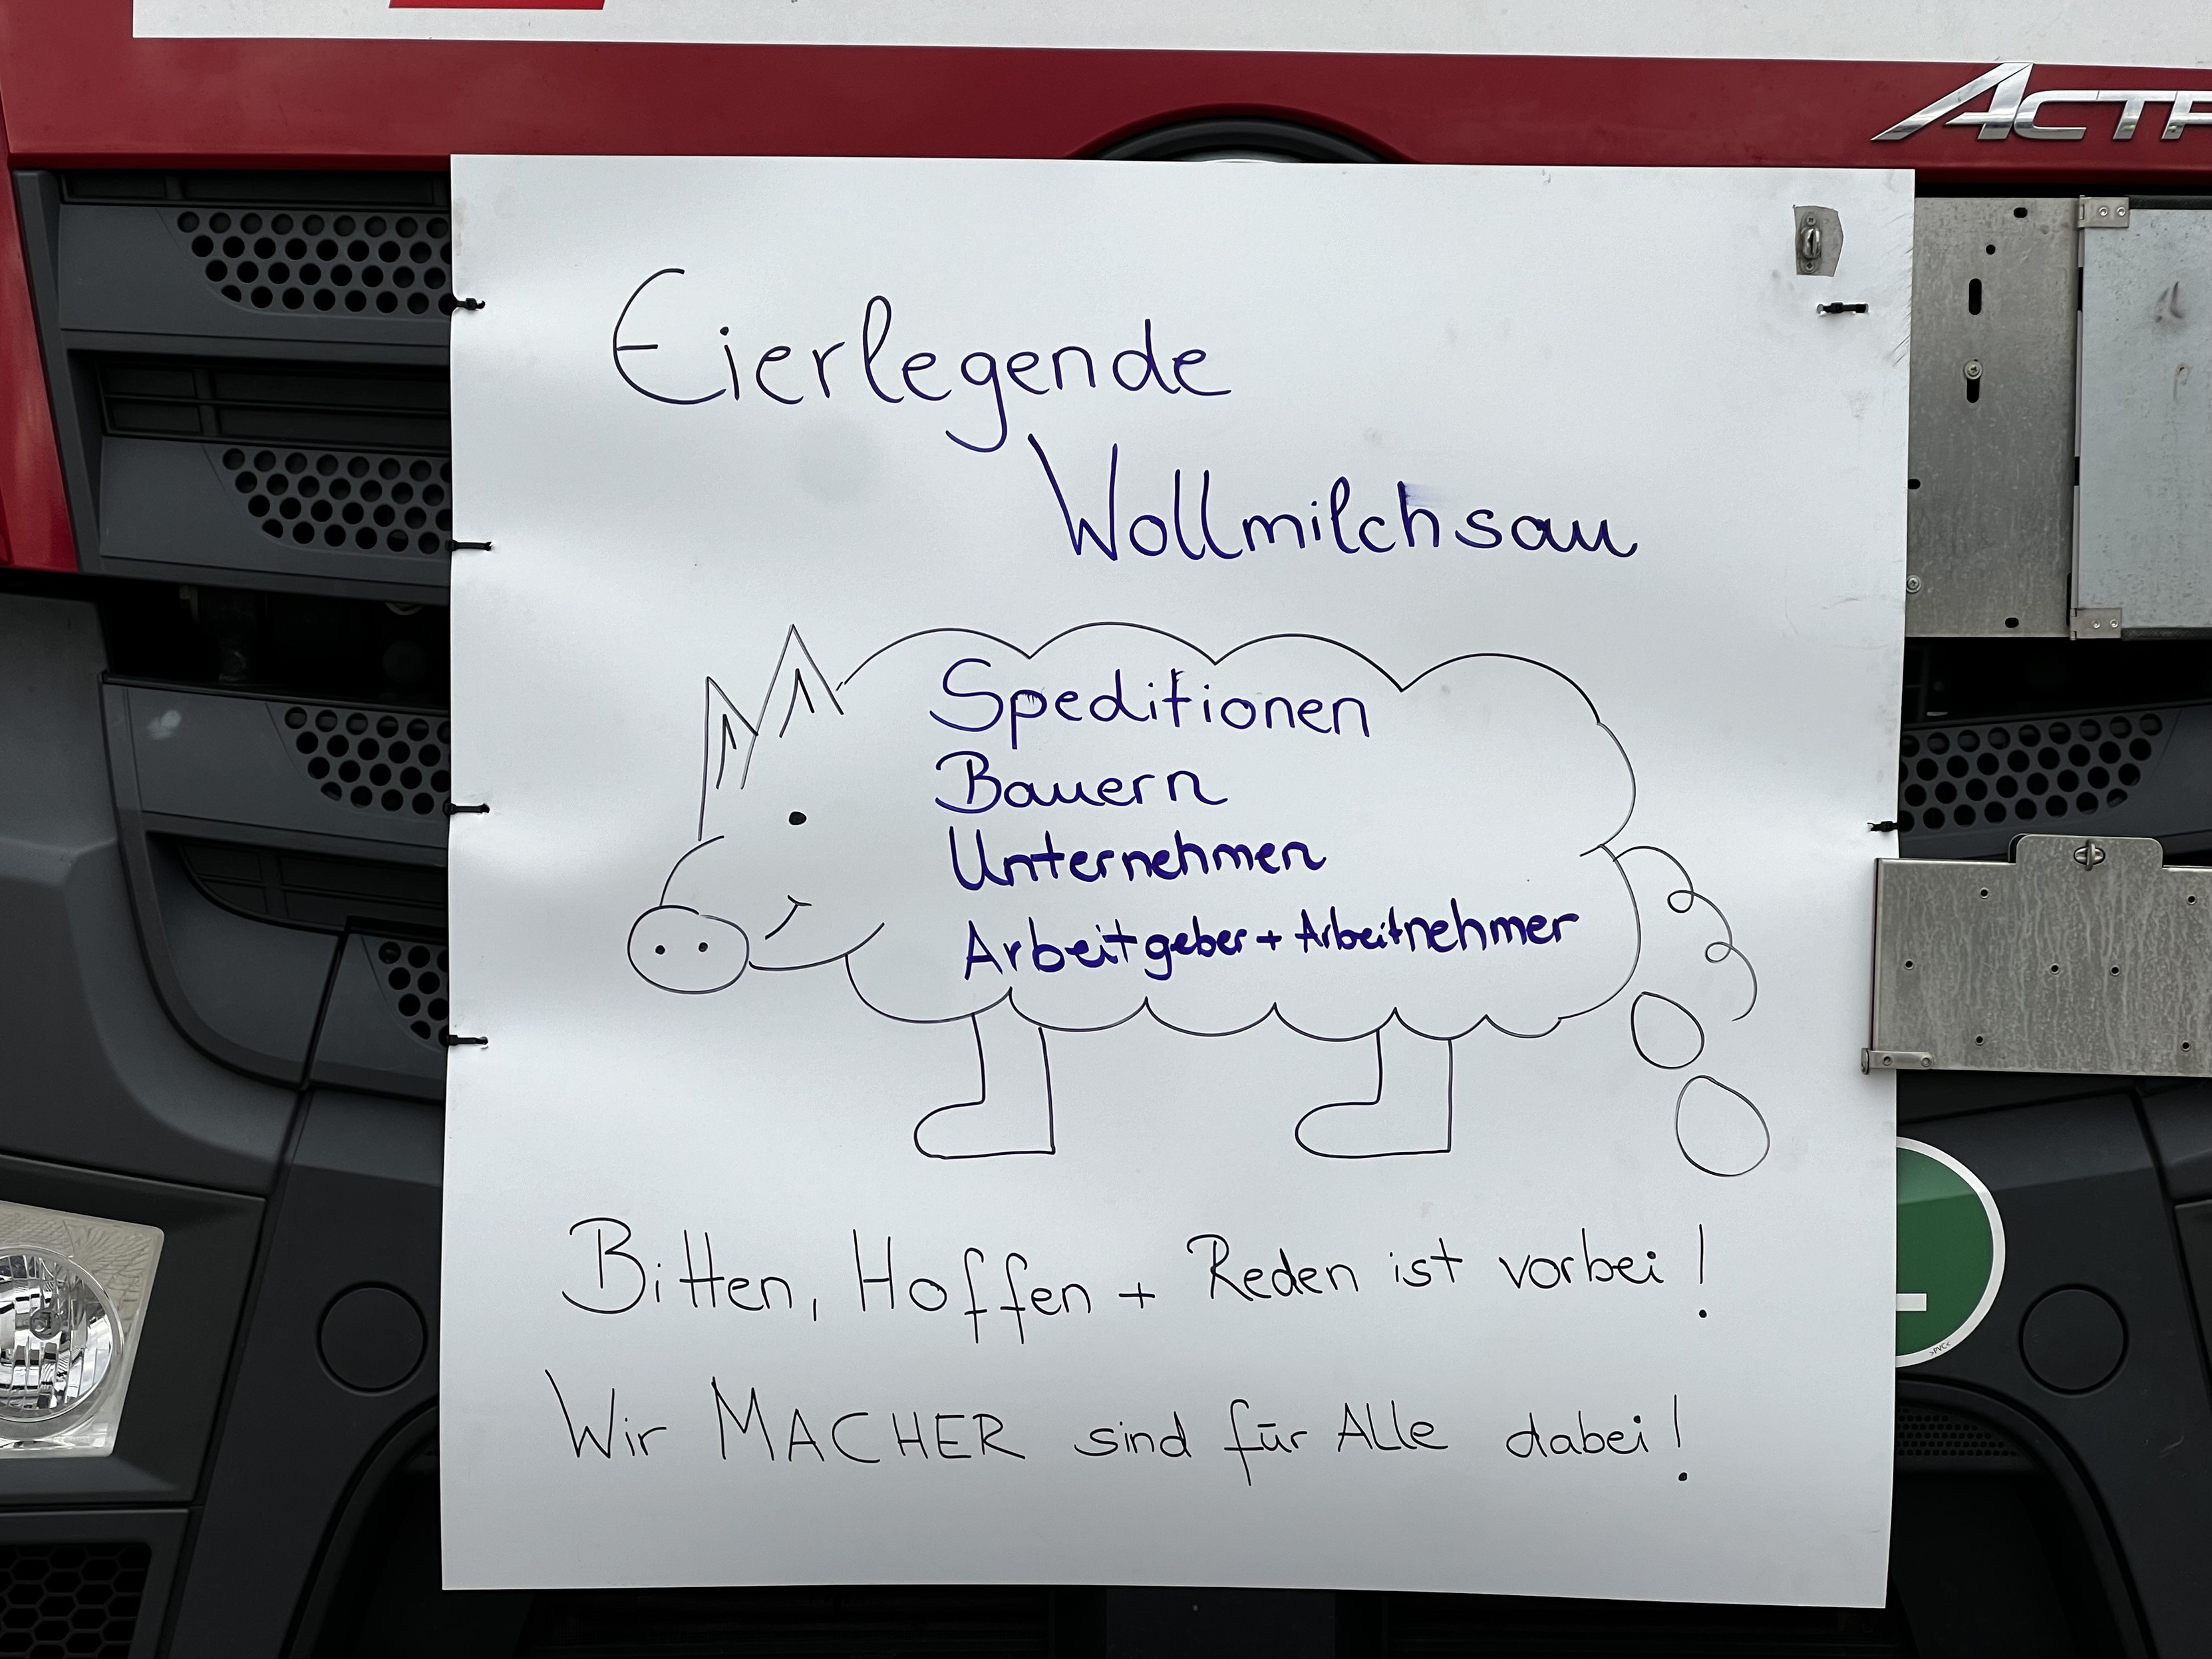 ACTR
Eierlegende
Wollmilchsau
Speditionen
Bauern
Unternehmen
Arbeitgeber + Arbeitnehmer
Bitten, Hoffen + Reden ist vorbei!
Wir MACHER sind für Alle dabei!
>PVC<